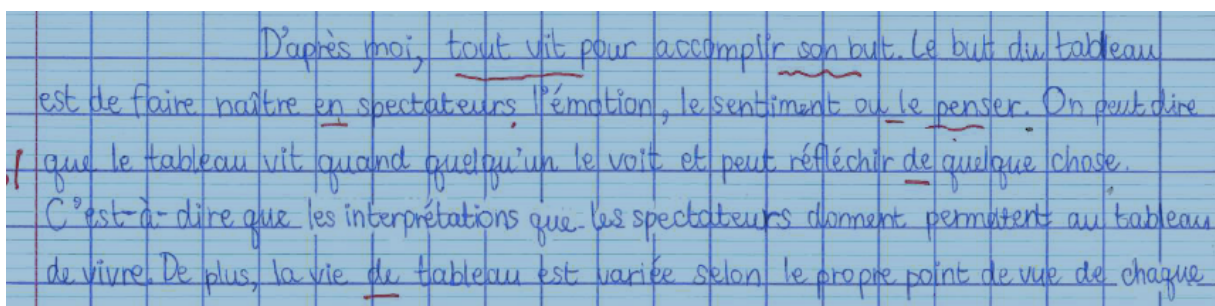 D'après moi, tout vit pour accomplir son but. Le but du tableau
est de faire naître en spectateurs l'émotion, le sentiment ou le penser. On peut dire
que le tableau vit quand quelqu'un le voit et peut réfléchir de quelque chose.
C'est-à-dire que les interprétations que les spectateurs donnent permettent au tableau
de vivre. De plus, la vie de tableau est variée selon le propre point de vue de chaque